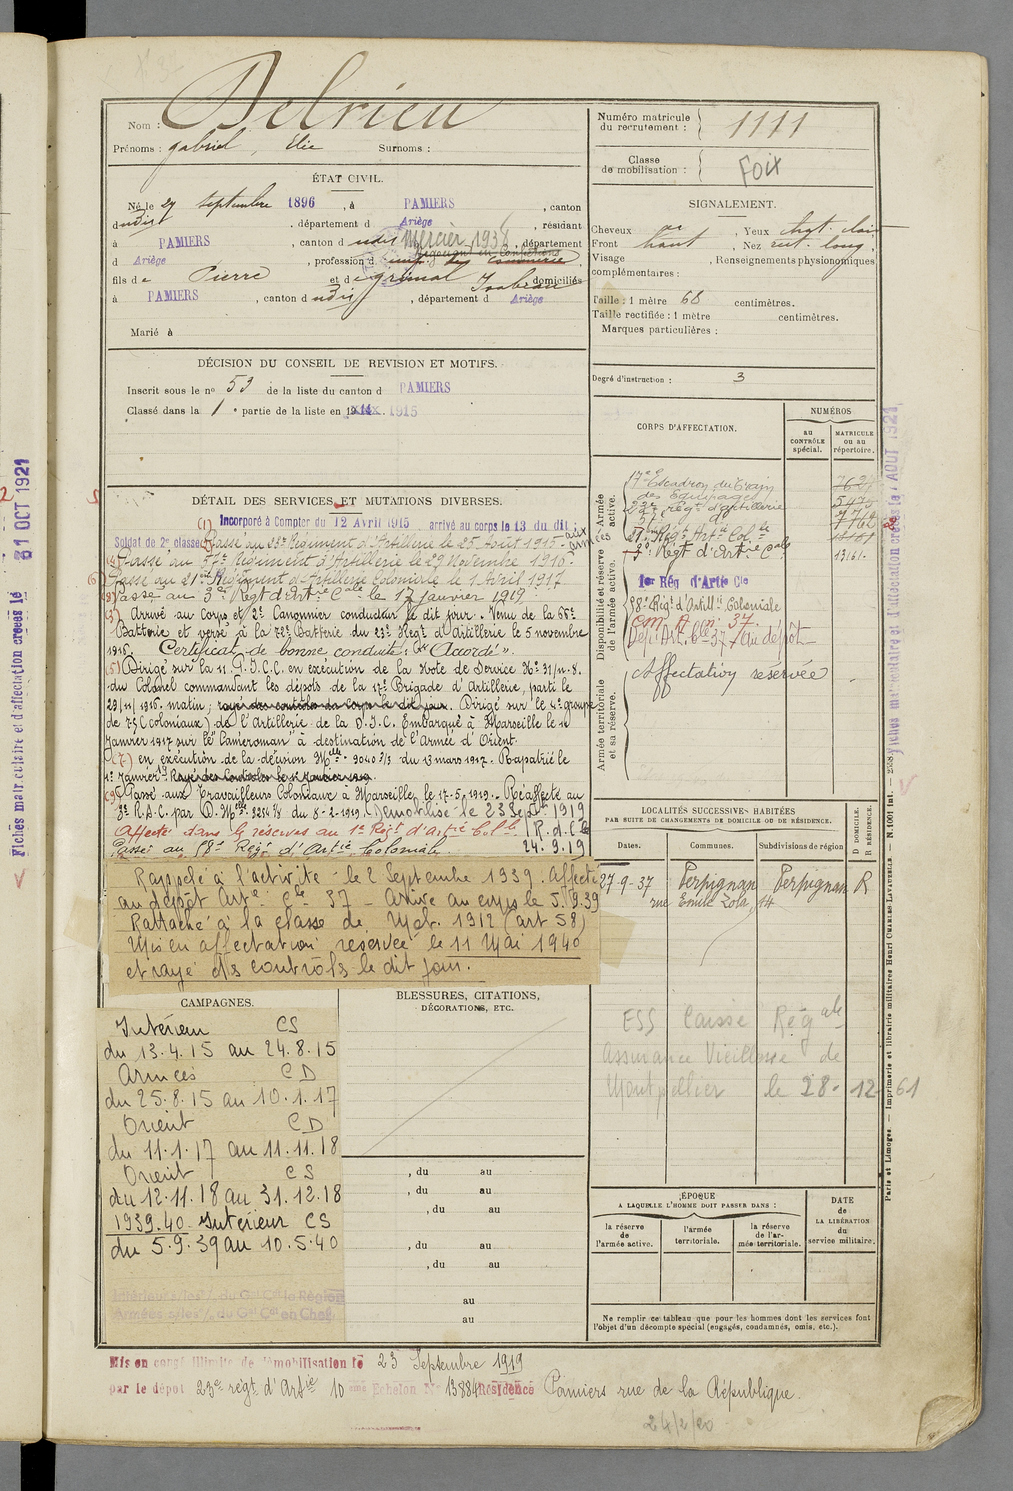 Nom : Delrieu
Prénoms : gabriel, Elie Surnoms :
ÉTAT CIVIL.
Né le 27 septembre 1896, à PAMIERS, canton
dudit, département d Ariège, résidant
à PAMIERS, canton d udit, département
Mercier 1938
d Ariège, profession d
fils de Pierre et de grimal domiciliés
à PAMIERS, canton d udit, département d Ariège
Marié à
DÉCISION DU CONSEIL DE REVISION ET MOTIFS.
Inscrit sous le nº 53 de la liste du canton d PAMIERS
Classé dans la 1e partie de la liste en 1915
DÉTAIL DES SERVICES ET MUTATIONS DIVERSES.
(1) Incorporé à Compter du 12 Avril 1915 arrivé au corps le 13 du dit
Soldat de 2e classe Passé au 23e Régiment d'Artillerie le 25 Août 1915 aux arm
Passé au 57e Régiment d'Artillerie le 29 Novembre 1916
(6) Passé au 21e Régiment d'Artillerie Coloniale le 1 Avril 1917
(8) Passé au 3e Regt d'Artie Cale le 17 janvier 1919
(3) Arrivé au Corps et 2e Canonnier conducteur le dit jour. Venu de la 66e
Batterie et versé à la 72e Batterie du 23e Regt d'Artillerie le 5 novembre
1915. Certificat de bonne conduite : "Accordé".
(5) Dirigé sur la 11 G.I.C.C. en exécution de la Note de Service Nº 31/11-8.
du Colonel commandant les dépôts de la 17e Brigade d'Artillerie, parti le
29/11/1916. matin; rayé des contrôles du corps le dit jour. Dirigé sur le 4e groupe
de 75 (coloniaux) de l'Artillerie de la D.I.C. Embarqué à Marseille le 11
Janvier 1917 sur le "Cameroman" à destination de l'Armée d'Orient.
(7) en exécution de la décision Melle 9040 3/3 du 13 mars 1917. Rapatrié le
1er Janvier 19 Rayé des Contrôles le 1er Janvier 1919
(9) Passé aux Travailleurs Coloniaux à Marseille, le 17-5-1919. Réaffecté au
3e R.A.C. par D. Melle du 8-2-1919. Démobilisé le 23 Septbre 1919
Affecté dans la réserve au 1er Régt d'Artie Colle
24.9.19
Passé au 58e Regt d'Artie Coloniale.
Rappelé à l'activité le 2 Septembre 1939. Affecté
au dépôt Artie Cle 37 - Arrivé au corps le 5.9.39
Rattaché à la classe de Mob. 1912 (art 58)
Mis en affectation réservée le 11 Mai 1940
et rayé des contrôles le dit jour.
CAMPAGNES.
Intérieur CS
du 13.4.15 au 24.8.15
Armées CD
du 25.8.15 au 10.1.17
Orient CD
du 11.1.17 au 11.11.18
Orient CS
du 12.11.18 au 31.12.18
1939.40 Intérieur CS
du 5.9.39 au 10.5.40
BLESSURES, CITATIONS,
DÉCORATIONS, ETC.
, du au
, du au
, du au
, du au
, du au
au
au
Mis en congé illimité de démobilisation le 23 Septembre 1919
par le dépôt 23e régt d'Artie 10 ème Echelon Nº 13884 Résidence Pamiers rue de la République.
24/2/20
Numéro matricule
du recrutement : 1111
Classe
de mobilisation : Foix
SIGNALEMENT.
Cheveux , Yeux chat. clair
Front haut, Nez rect. long.
Visage , Renseignements physionomiques
complémentaires :
Taille : 1 mètre 68 centimètres.
Taille rectifiée : 1 mètre centimètres.
Marques particulières :
Degré d'instruction : 3
CORPS D'AFFECTATION.
NUMÉROS
AU CONTRÔLE spécial.
MATRICULE ou au répertoire.
Disponibilité et réserve de l'armée active.
Armée active.
17e Escadron du Train
des Equipages
23e régt d'artillerie
57e d°
21e Régt Artie Colle
3e Régt d'Artie Cale
13161.
1er Rég d'Artie Cle
58e Régt d'Artill. Coloniale
Com. A. nº 37.
Dépt Art. Cle 37 / Au dépôt
Affectation réservée
Armée territoriale et sa réserve.
LOCALITÉS SUCCESSIVES HABITÉES
PAR SUITE DE CHANGEMENTS DE DOMICILE OU DE RÉSIDENCE.
Dates. Communes. Subdivisions de région
D DOMICILE.
R RÉSIDENCE.
27-9-37 Perpignan Perpignan R
rue Emile Zola, 14
ESS Caisse Régale
Assurance Vieillesse de
Montpellier le 28-12-61
ÉPOQUE
A LAQUELLE L'HOMME DOIT PASSER DANS :
DATE
de
LA LIBÉRATION
du
service militaire.
la réserve de l'armée active.
l'armée territoriale.
la réserve de l'armée territoriale.
Ne remplir ce tableau que pour les hommes dont les services font
l'objet d'un décompte spécial (engagés, condamnés, omis, etc.).
Paris et Limoges. — Imprimerie et librairie militaires Henri CHARLES-LAVAUZELLE. — N. 1001 Int.
Fiches matriculaire et d'affectation créées le AOUT 1921
Fiches matriculaire et d'affectation créées le 31 OCT 1921